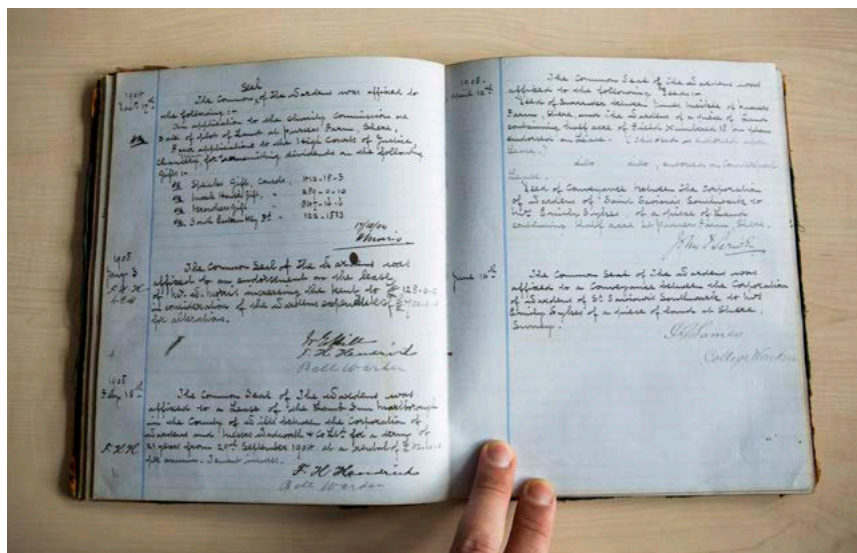 1904
Seal
The Common of The Wardens was affixed to
the following :-
An application to the Charity Commission re
Sale of plot of Land at Pursers Farm, Shere,
Four applications to the High Courts of Justice
Chancery, for remitting dividends on the following
Gifts :-
Gift, Consols, 1012-18-3
Gift,
Gift
South Eastern Rly
1905
The Common Seal of The Wardens was
affixed to an endorsement on the lease
of Mr. increasing the Rent to £123-0-0
in consideration of the Wardens expending
for alteration.
F. H. H.
F. H. Hendrick
Bell Warden
1905
The Common Seal of The Wardens was
affixed to a Lease of the Lamb Inn Marlborough
in the County of Wilts between the Corporation of
Wardens and Messrs Wadworth & Co Ltd for a term of
21 years from 29th September 1904 at a rental of
per annum.
F. H. H.
F. H. Hendrick
Bell Warden
1905.
The Common Seal of The Wardens was
affixed to the following Deeds:-
Deed of Surrender between James of Pursers
Farm, Shere, and the Wardens of a piece of Land
containing half acre of Field Numbered 18 on plan
endorsed on Lease. (This deed is endorsed upon
Lease.)
ditto ditto, endorsed on Counterpart
Lease.
Deed of Conveyance between the Corporation
of Wardens of Saint Saviours Southwark to
Mrs. Emily Sykes, of a piece of Land
containing half acre at Pursers Farm, Shere.
June 14th
The Common Seal of The Wardens was
affixed to a Conveyance between the Corporation
of Wardens of St Saviours Southwark to Mrs
Emily Sykes of a piece of land at Shere,
Surrey.
College Warden